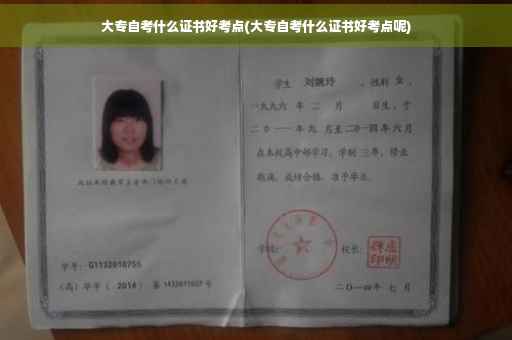 大专自考什么证书好考点(大专自考什么证书好考点呢)
学生 刘婉玲 ，性别 女 ，
一九九六 年 二 月 日生，于
二〇一一 年 九 月至 二〇一四 年 六 月
在本校高中部学习，学制 三 年，修业
期满，成绩合格，准予毕业。
学号： G1132010755
(高) 毕字 ( 2014 ) 第 1432011007 号
学校：
校长：
二〇一四年 七 月